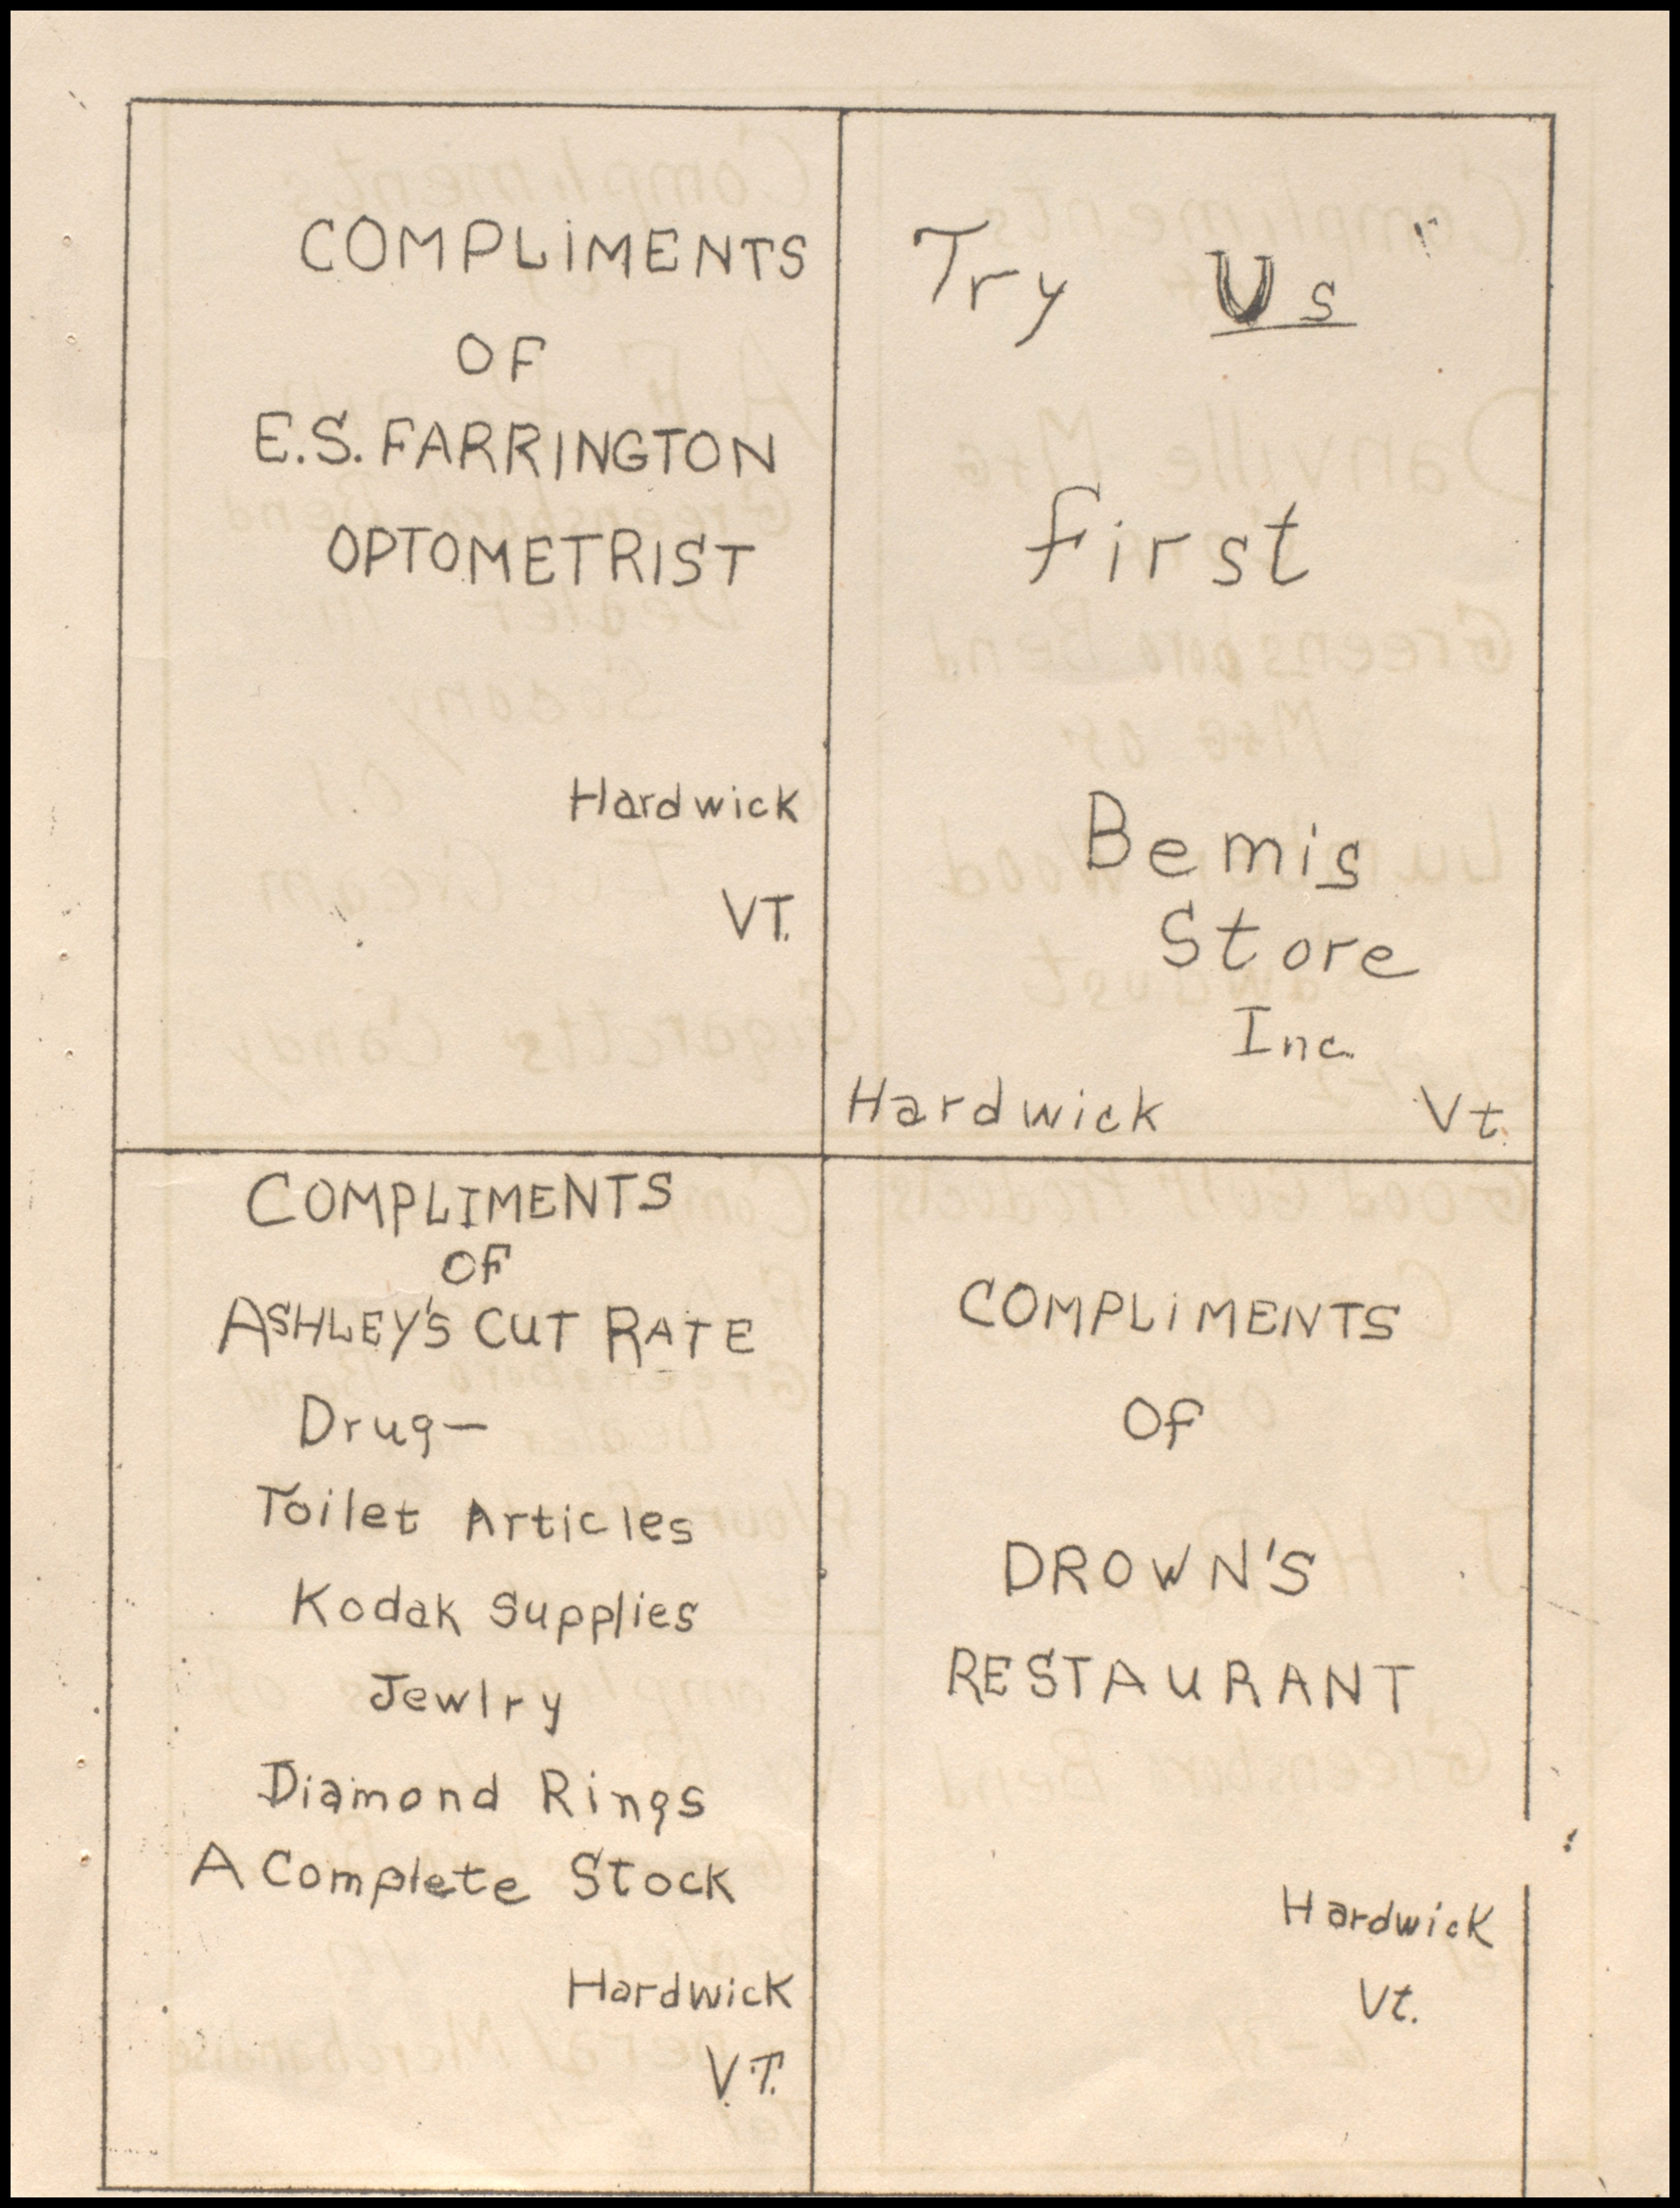 COMPLIMENTS
OF
E.S. FARRINGTON
OPTOMETRIST
Hardwick
VT.
Try Us
First
Bemis
Store
Inc.
Hardwick Vt.
COMPLIMENTS
OF
ASHLEY'S CUT RATE
Drug—
Toilet Articles
Kodak Supplies
Jewlry
Diamond Rings
A Complete Stock
Hardwick
V.T.
COMPLIMENTS
Of
DROWN'S
RESTAURANT
Hardwick
Vt.